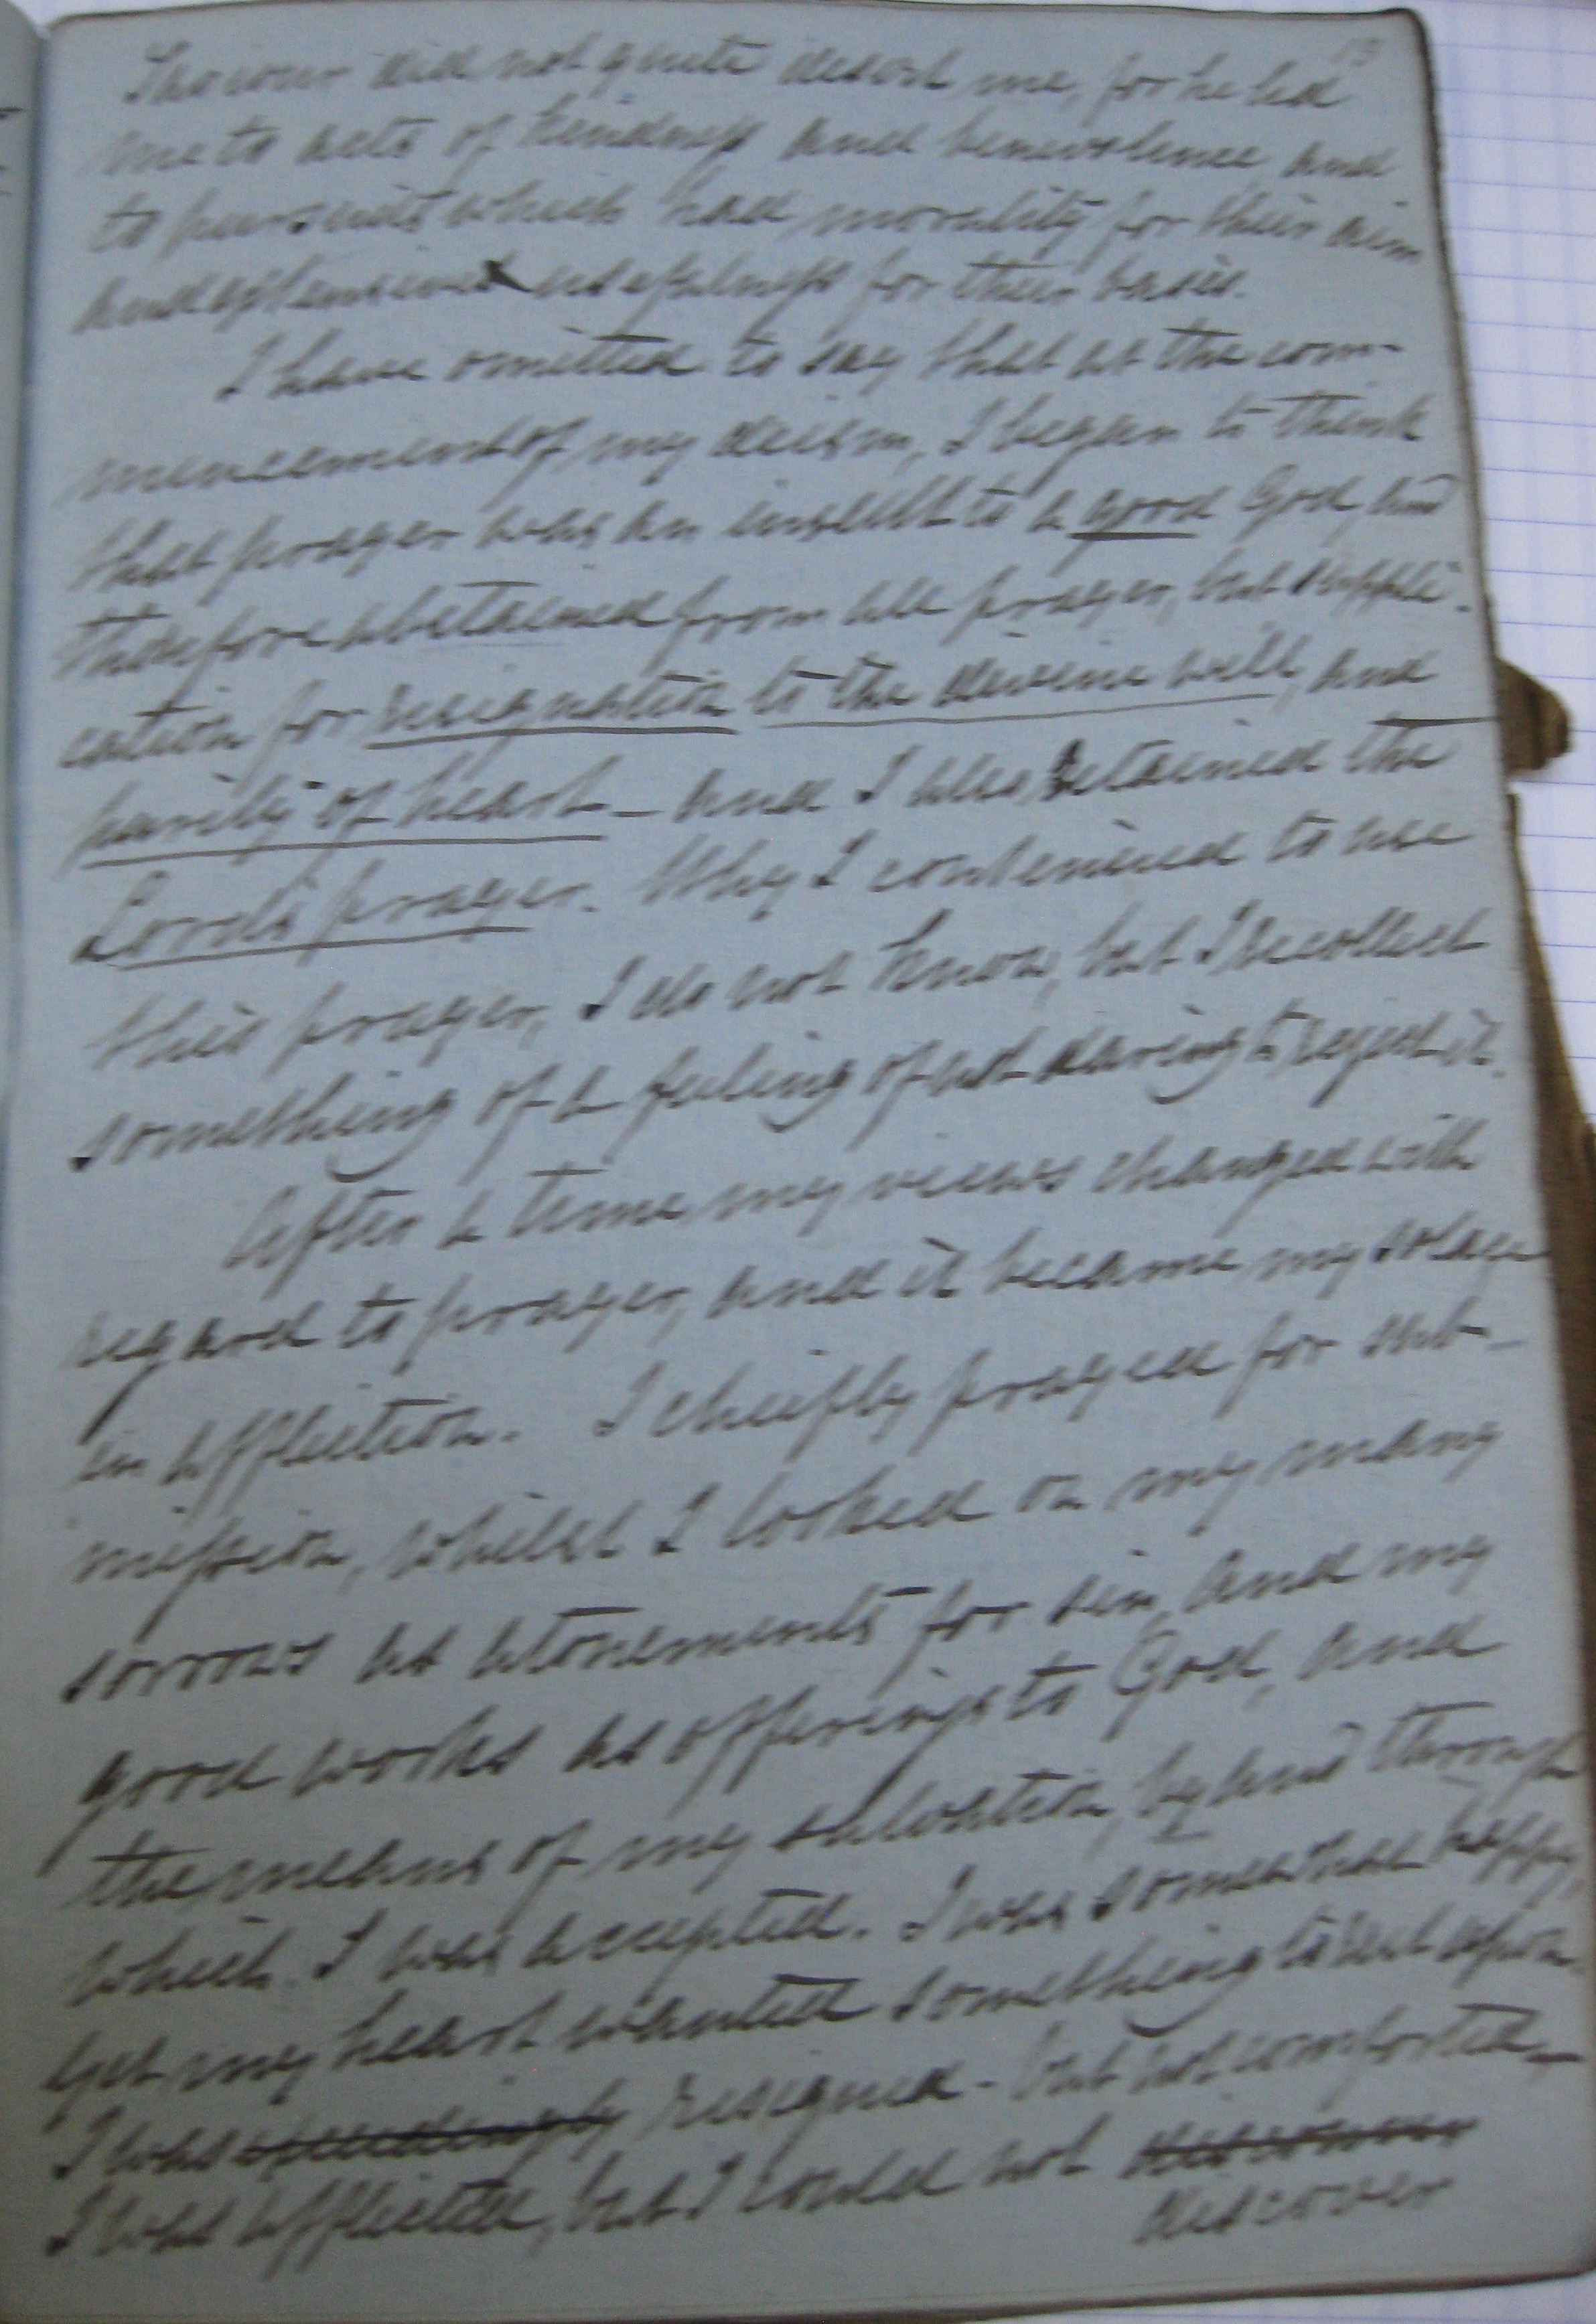 Saviour did not quite desert me, for he led
me to acts of kindness and benevolence and
to pursuits which had morality for their aim
and extensive usefulness for their basis.
I have omitted to say that at the com-
mencement of my deism, I began to think
that prayer was an insult to a good God, and
therefore abstained from all prayer, but suppli-
cation for resignation to the divine will, and
purity of heart - and I also retained the
Lord's prayer. Why I continued to use
this prayer, I do not know, but I recollect
something of a feeling of not daring to reject it.
After a time my views changed with
regard to prayer, and it became my solace
in affliction. I chiefly prayed for sub-
mission, whilst I looked on my many
sorrows as atonements for sin, and my
good works as offerings to God, and
the means of my salvation, by and through
which I was accepted. I was somewhat happy,
yet my heart wanted something to rest upon.
I was exceedingly resigned - but not comforted -
I was afflicted, but I could not discover
discover